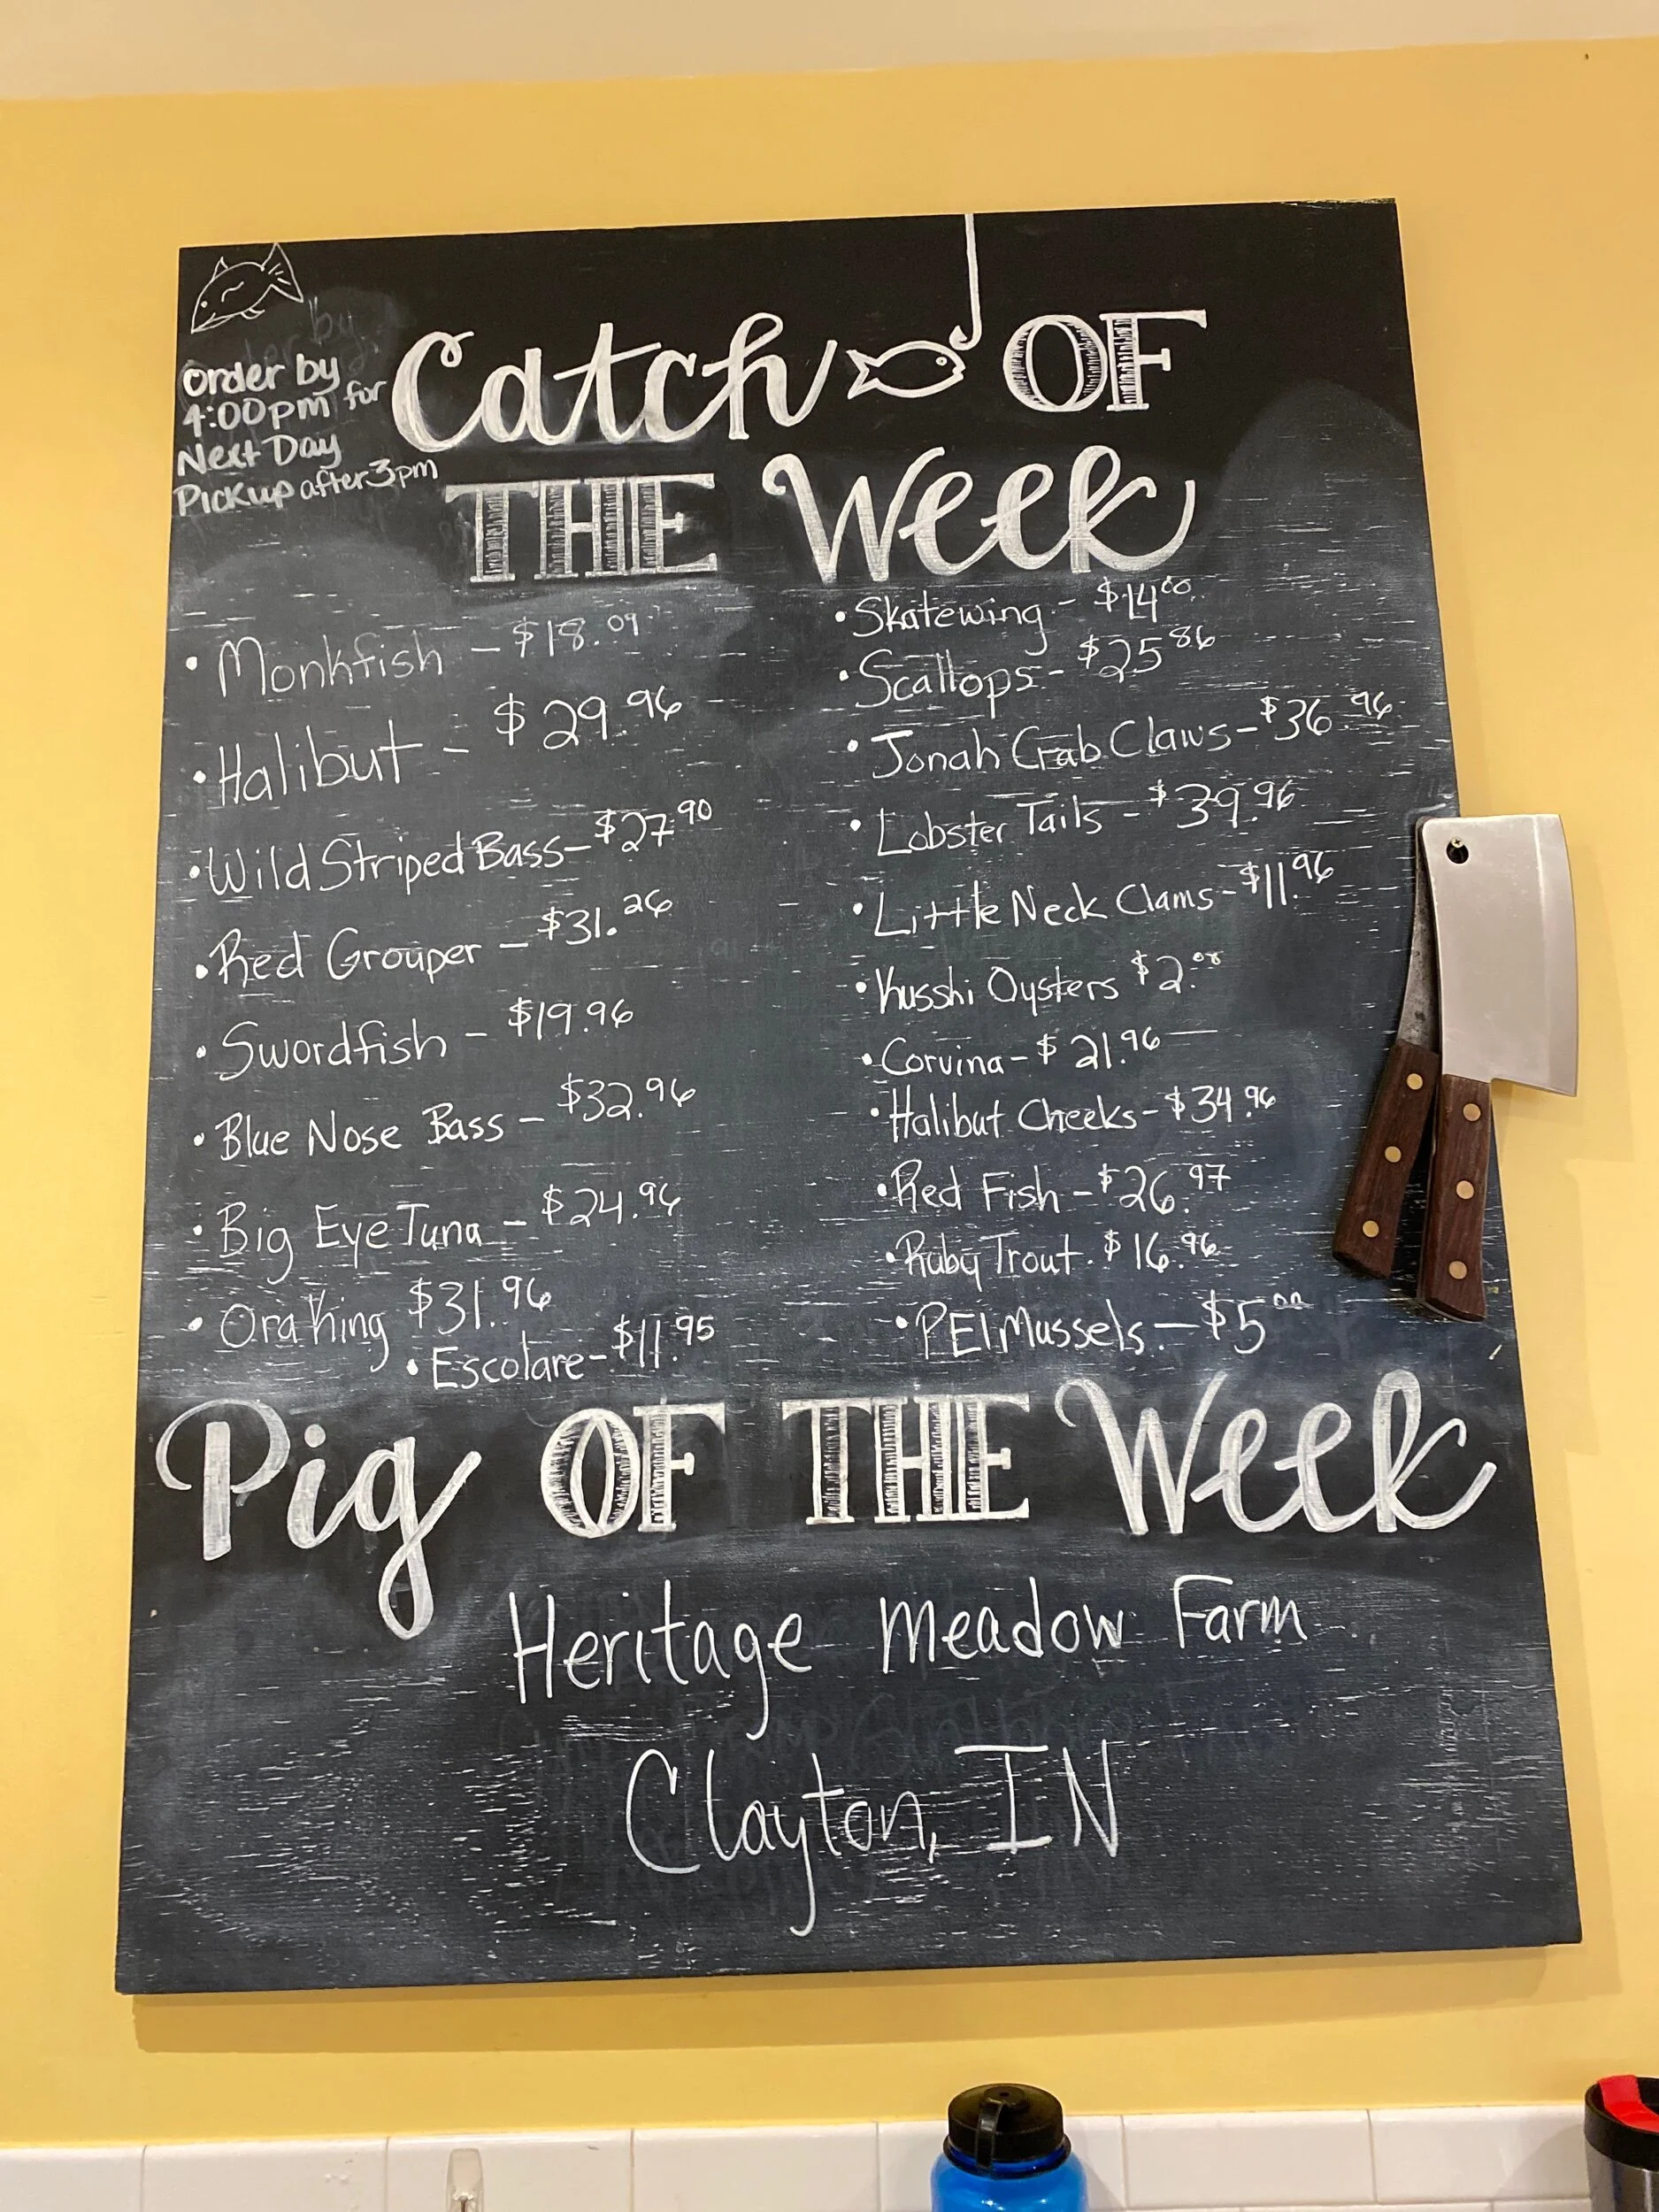 Order by
4:00pm for
Next Day
Pickup after 3pm
Catch OF
THE Week
• Monkfish - $18.09
• Halibut - $29.96
• Wild Striped Bass - $27.90
• Red Grouper - $31.26
• Swordfish - $19.96
• Blue Nose Bass - $32.96
• Big Eye Tuna - $24.96
• Ora King $31.96
• Escolare - $11.95
• Skatewing - $14.00
• Scallops - $25.86
• Jonah Crab Claws - $36.96
• Lobster Tails - $39.96
• Little Neck Clams - $11.96
• Kusshi Oysters $2.
• Corvina - $21.96
• Halibut Cheeks - $34.96
• Red Fish - $26.97
• Ruby Trout. $16.96
• PEI Mussels. - $5.00
Pig OF THE Week
Heritage Meadow Farm
Clayton, IN